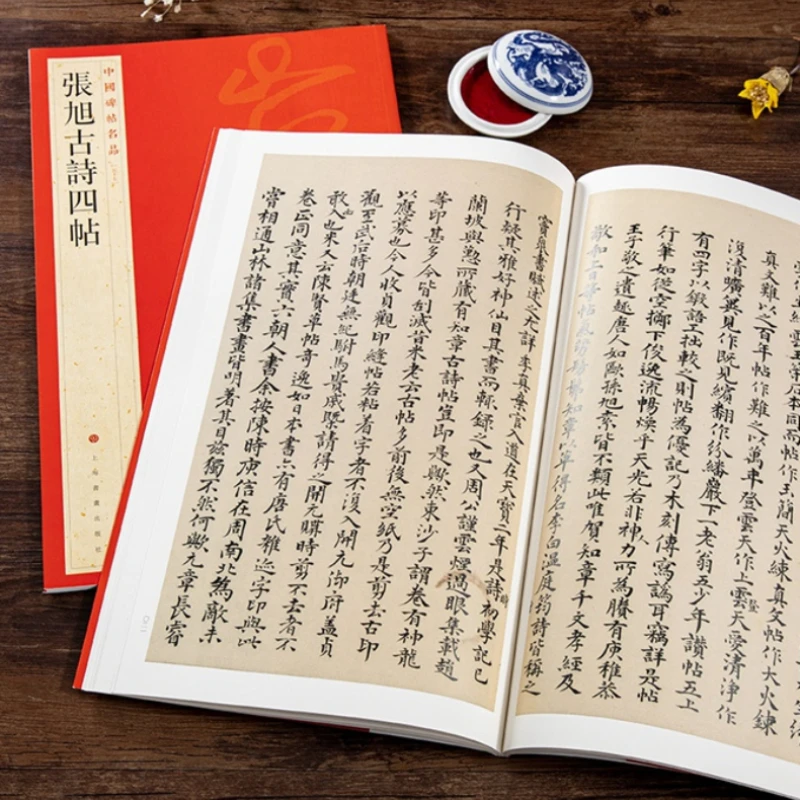 中國碑帖名品
張旭古詩四帖
上海書畫出版社
同而帖作玉簡天火練真文帖作大火練
真文難以之百年帖作難之以萬年登雲天作上雲天愛清淨作
復清曠奚見作既見翻作紛繙巖下一老翁五少年讚帖五上
有四字以鍛語工拙較之則帖為優記乃木刻傳寫譌耳竊詳是帖
行筆如從空擲下俊逸流暢煥乎天光若非人力所為賡有庾稚恭
王子敬之遺趣唐人如歐孫旭素皆不類此唯賀知章千文孝經及
敬和上日等帖氣勢彷彿知章以草得名李白溫庭筠詩皆稱之
竇臮書賦述之尤詳季真棄官入道在天寶二年是詩初學記已
行疑其雅好神仙目其書而輒錄之也又周公謹雲煙過眼集載趙
蘭坡與懃所藏有知章古詩帖豈即是歟然東沙子謂卷有神龍
等印甚多今皆刮滅昔米老云古帖多前後無空紙乃是剪去古印
以應募也今人收貞觀印縫帖若粘着字者不復入開元御府蓋貞
觀至武后時朝廷無紀駙馬貴戚請得之開元購時剪不去者不
敢入也米又云陳賢草帖奇逸如日本書亦有唐氏雜迹字印與此
卷正同意其實六朝人書余按陳時庾信在周南北為敵未
嘗相通山林諸集書畫皆明著其目茲獨不然何歟元章長睿